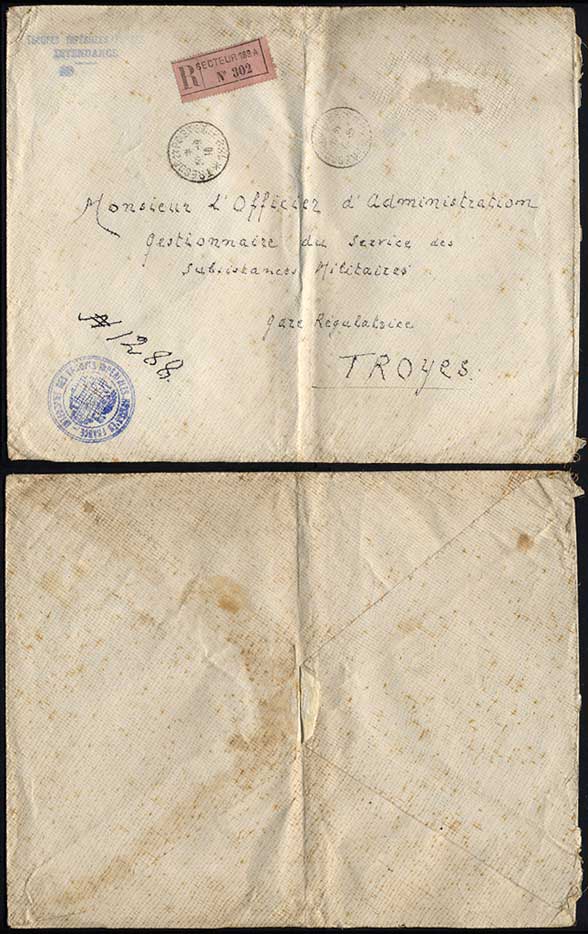 INTENDANCE
R SECTEUR 189A
N° 302
TRESOR ET POSTES
Monsieur l'Officier d'Administration
Gestionnaire du Service des
Subsistances Militaires
Gare Régulatrice
TROYES
N 1288
EN FRANCE